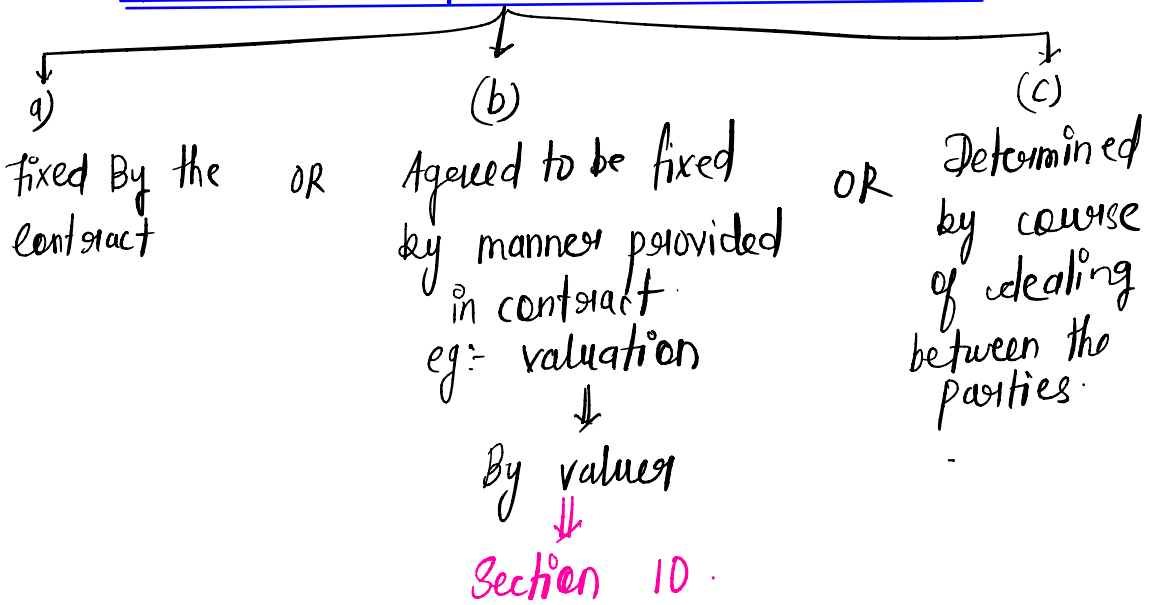 a)
fixed By the
contract
OR
(b)
Agreed to be fixed
by manner provided
in contract.
eg:- valuation
By valuer
Section 10.
OR
(c)
Determined
by course
of dealing
between the
parties.